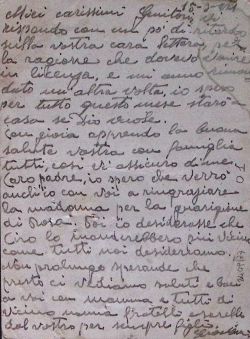 Miei carissimi Genitori vi
rispondo con un po' di ritardo
sulla vostra cara lettera, per
la ragione che dovevo venire
in licenza, e mi anno
dato un'altra volta, io spero
per tutto questo mese starò
casa se Dio vuole.
Con gioia apprendo la buona
salute vostra con famiglia
tutti, così vi assicuro di me.
Caro padre, io spero che verrò
anch'io con voi a ringraziare
la madonna per la guarigione
di Rosa. Poi io desiderasse che
Ciro lo manderebbero più vicino
come tutti noi desideriamo.
Non prolungo sperando che
presto ci vediamo saluti e baci
a voi con mamma e tutti di
vicino nonna fratello e sorelle
dal vostro per sempre figlio